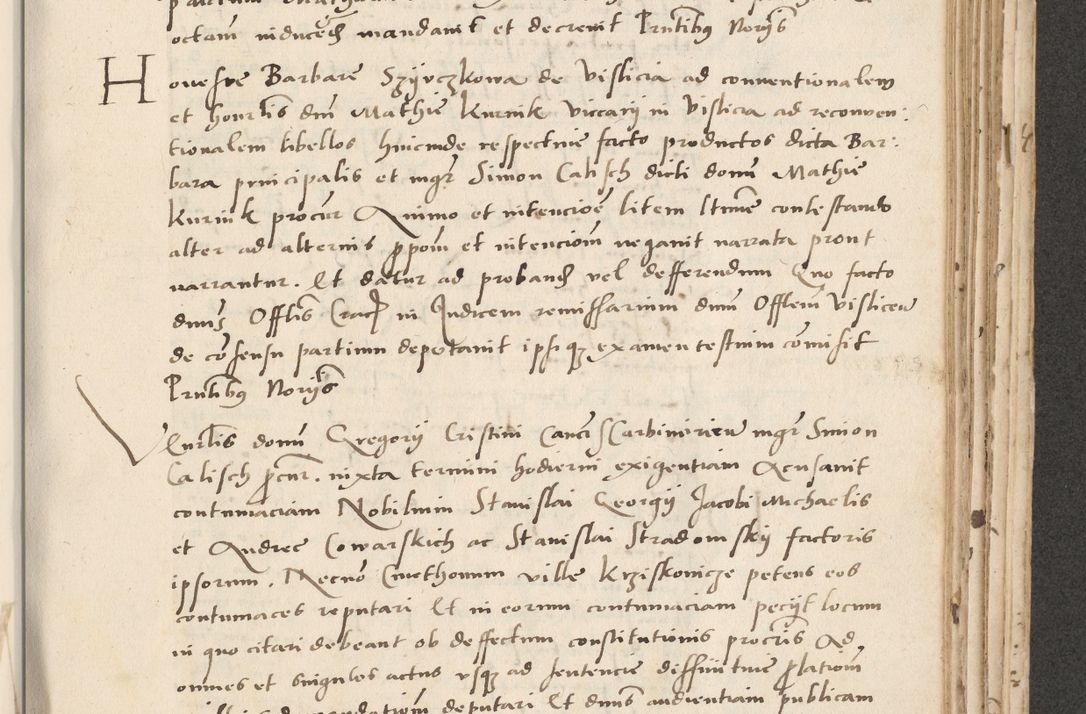 octam inducend mandavit et decrevit Prntibus Noriis
Honeste Barbare Szijvczkowa de Vislicia ad conventionalem
et honrlis dni Mathie Kurnik viccarij in Vislicia ad reconven:
tionalem libellos hincinde respective facto productos dicta Bar:
bara principalis et mgr Simon Calisch dicti domi Mathie
Kurnik procur Animo et intencioe litem ltime contestando
alter ad alternis ppom et intenciom negavit narrata prout
narrantur. Et datur ad proband vel defferendum Quo facto
dnus Offlis Crac in Judicem remissarium dnum Offlem Vislicen
de consensu partium deputavit ipsique examen testium comisit
Prntibus Noriis
Venrlis domi Gregorij Cristini Canci Scarbimirien mgr Simon
Calisch pcur. iuxta termini hodierni exigentiam Acusavit
contumaciam Nobilium Stanislai Georgij Jacobi Michaelis
et Andree Cowarskich ac Stanislai Stradomskij factoris
ipsorum. Necno Cmethonum ville Krziskowicze petens eos
contumaces reputari Et in eorum contumaciam pecijt locum
in quo citari debeant ob deffectum constitutionis procris Ad
omnes et singulos actus usque ad sentencie diffinitive plationem
deputari Et dnus audientiam publicam